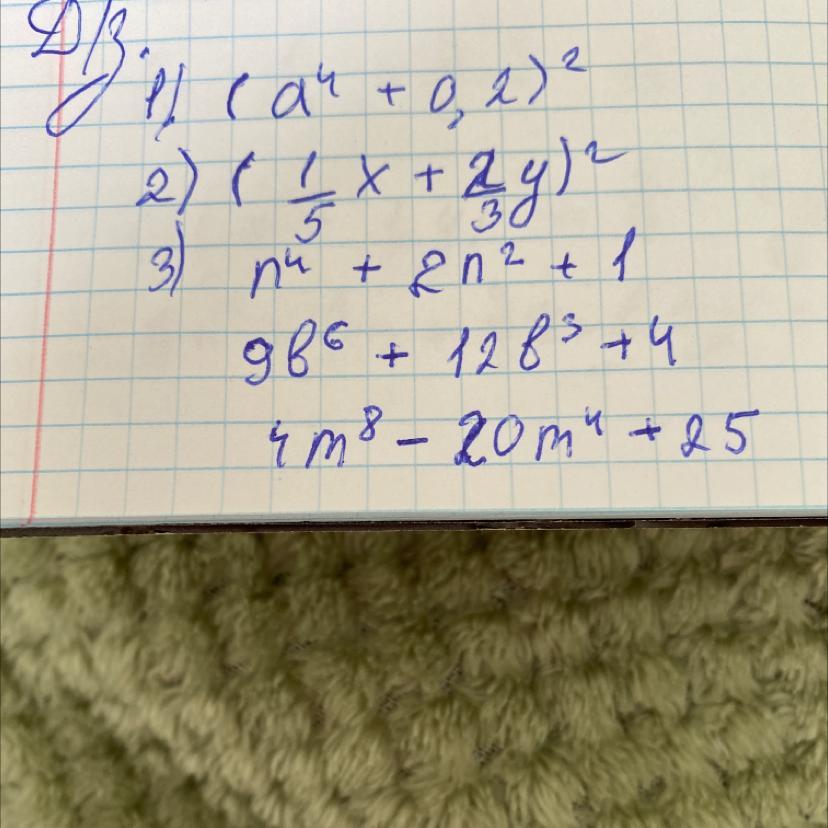 Д/з.
1) (a⁴ + 0,2)²
2) (1/5 x + 2/3 y)²
3) n⁴ + 2n² + 1
9b⁶ + 12b³ + 4
4m⁸ - 20m⁴ + 25